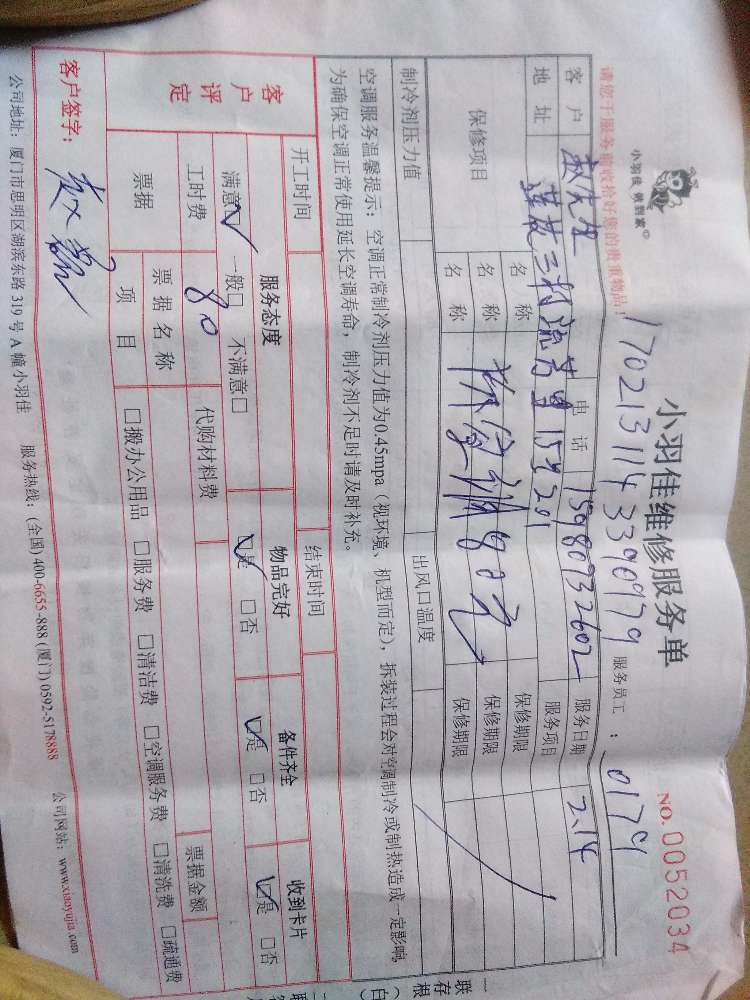 小羽佳 做到家
小羽佳维修服务单
NO.0052034
1702131143390979 服务员工：0179
请您于服务前收拾好您的贵重物品！
客户 赵先生 电话 15980932602 服务日期 2.14
地址 莲花三村 15号201 服务项目
保修项目 名称 保修期限
名称 80元 保修期限
名称 保修期限
制冷剂压力值 出风口温度
空调服务温馨提示：空调正常制冷剂压力值为0.45mpa（视环境、机型而定），拆装过程会对空调制冷或制热造成一定影响，
为确保空调正常使用延长空调寿命，制冷剂不足时请及时补充。
开工时间 结束时间
客户评定 服务态度 物品完好 备件齐全 收到卡片
满意☑ 一般□ 不满意□ ☑是 □否 ☑是 □否 ☑是 □否
工时费 80 代购材料费
票据 票据名称 票据金额
项目 □搬办公用品 □服务费 □清洁费 □空调服务费 □清洗费 □疏通费
客户签字：
公司地址：厦门市思明区湖滨东路319号A幢小羽佳 服务热线：(全国) 400-6655-888 (厦门) 0592-5178888 公司网站：www.xiaoyujia.com
一联存根（白